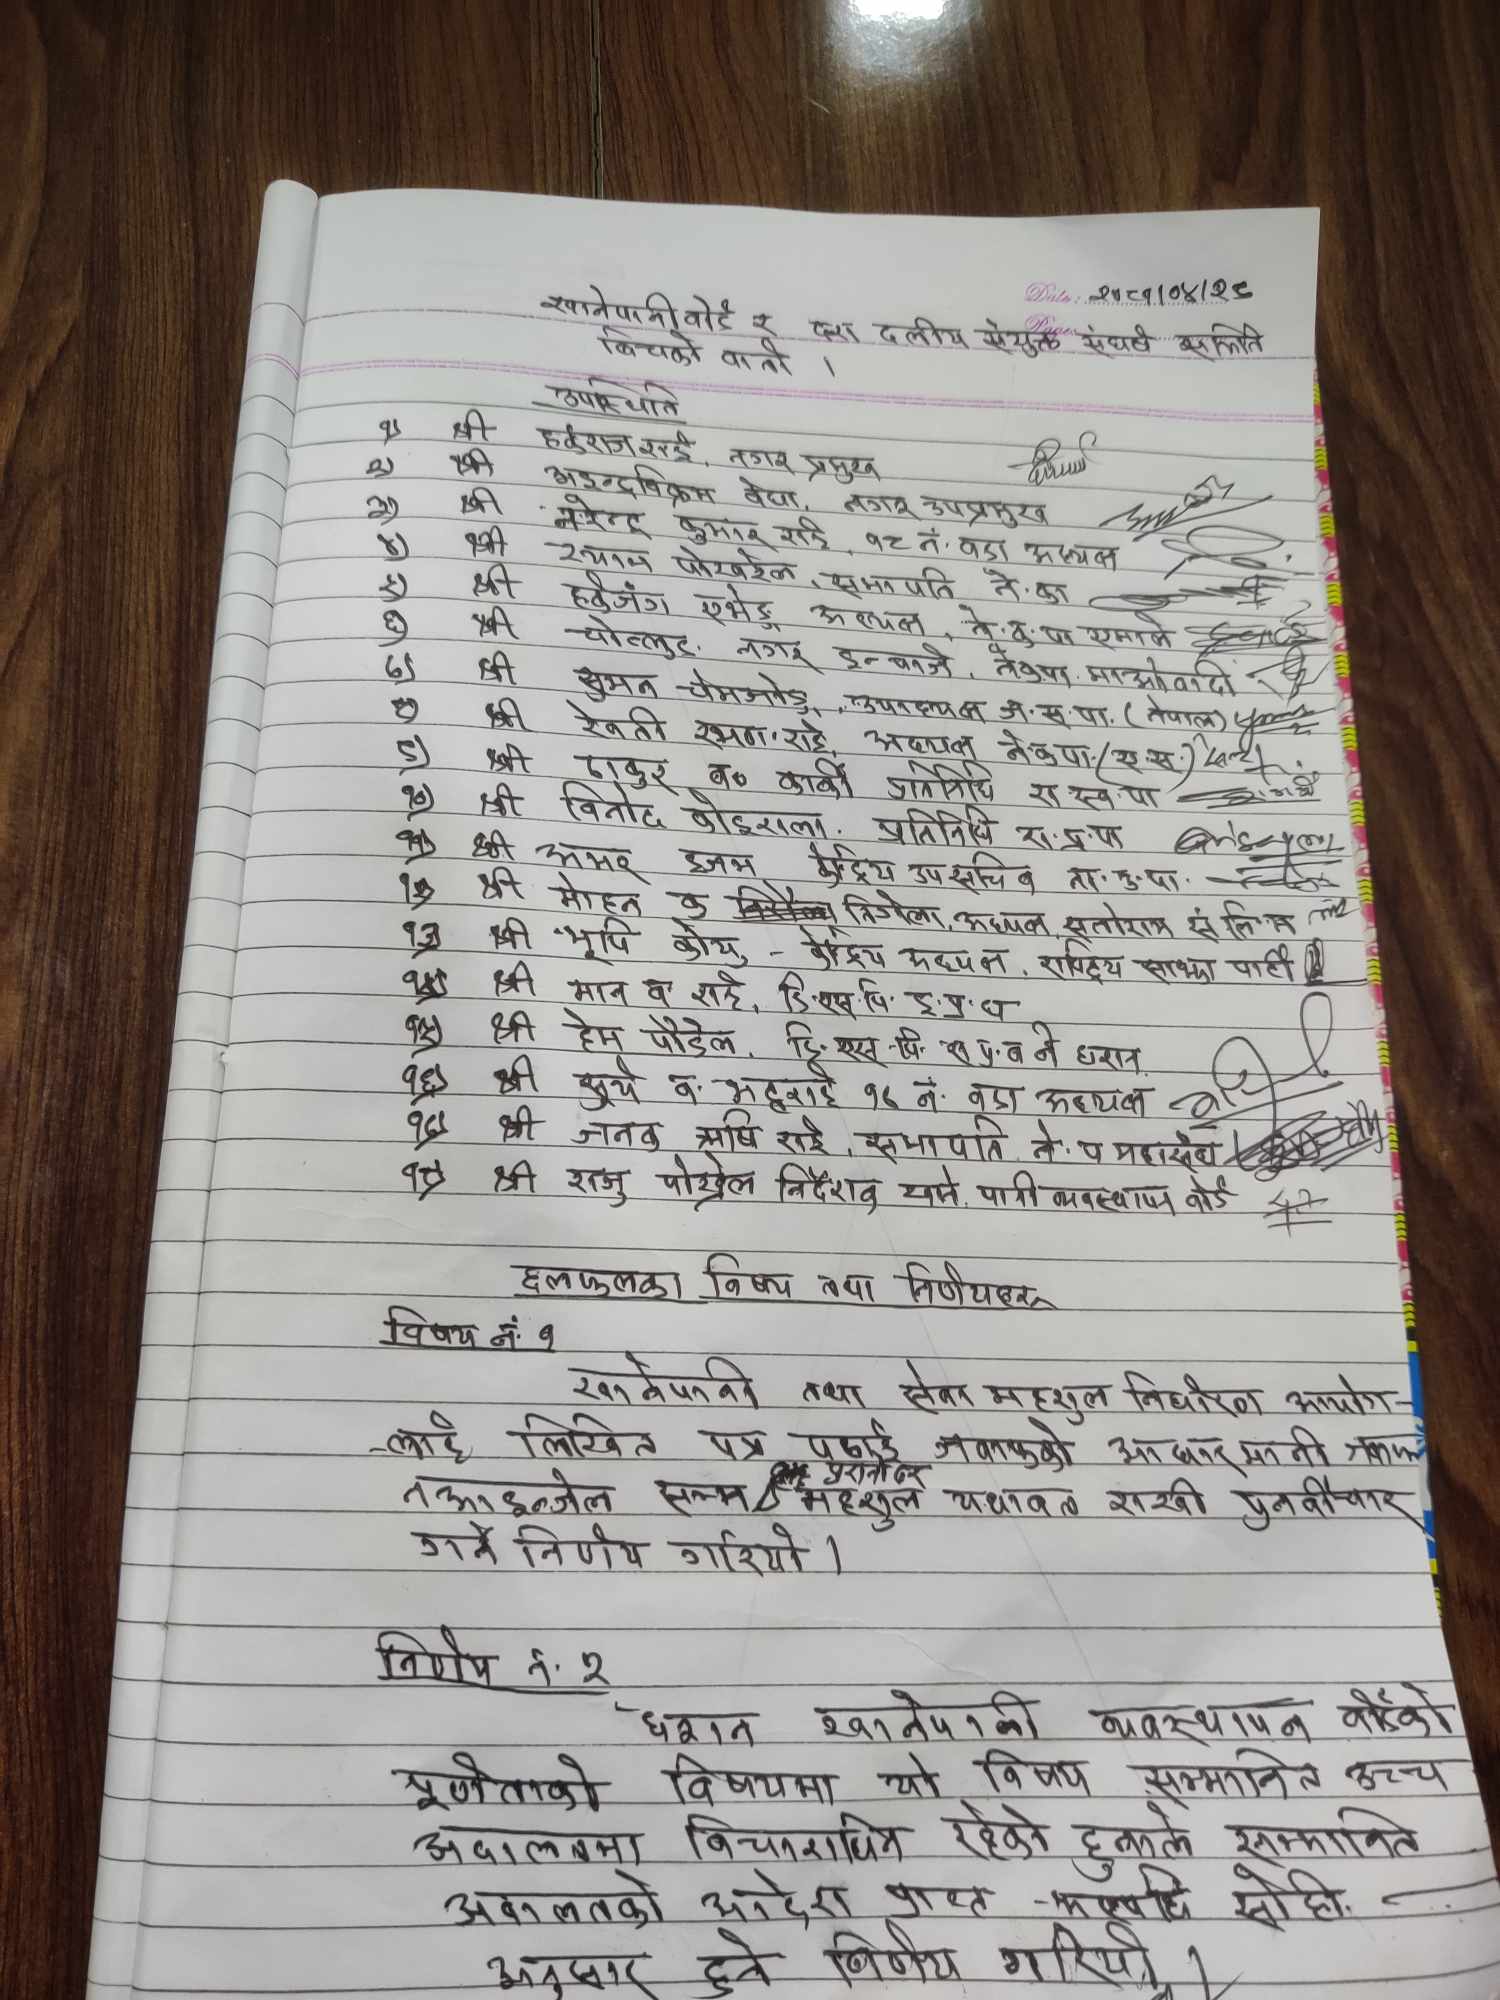 Date: २०८१/०४/२८
खानेपानी वोर्ड र दश दलीय संयुक्त संघर्ष समिति
विचको वार्ता ।
उपस्थिति
१) श्री हर्कराज राई, नगर प्रमुख
२) श्री अइन्द्रविक्रम वेघा, नगर उपप्रमुख
३) श्री नरेन्द्र कुमार राई, १८ नं. वडा अध्यक्ष
४) श्री श्याम पोखरेल, सभापति ने.का
५) श्री हर्कजंग अध्यक्ष, ने.क.पा एमाले
६) श्री नगर इन्चार्ज, नेकपा माओवादी
७) श्री सुमन चेमजोङ, उपाध्यक्ष ज.स.पा. (नेपाल)
८) श्री रेवती रमण राई, अध्यक्ष ने.क.पा. (ए.स.)
९) श्री ठाकुर व० कार्की प्रतिनिधि रा स्व पा
१०) श्री विनोद कोइराला. प्रतिनिधि रा.प्र.पा
११) श्री अमर इजम केन्द्रिय उपसचिव ने.क.पा.
१२) श्री मोहन क निरौला, अध्यक्ष,
१३) श्री भूपि - केन्द्रिय अध्यक्ष, राष्ट्रिय साझा पार्टी
१४) श्री मान व राई, डि.एस.पि. इ.प्र.ध
१५) श्री हेम पौडेल, डि.एस.पि. स प्र.व ने धरान
१६) श्री सुर्य व. भट्टराई १६ नं. वडा अध्यक्ष
१७) श्री जनक ऋषि राई, सभापति, ने. प महासंघ
१८) श्री राजु पोख्रेल निर्देशक खाने. पानी व्यवस्थापन वोर्ड
छलफलका विषय तथा निर्णयहरू
विषय नं. १
खानेपानी तथा सेवा महशुल निर्धारण आयोग-
लाई लिखित पत्र पठाई जवाफको आधारमानी जवाफ
नआइन्जेल सम्म पुरानोदर महशुल यथावत राखी पुनर्वीचार
गर्ने निर्णय गरियो ।
निर्णय नं. २
धरान खानेपानी व्यवस्थापन वोर्डको
पूर्णताको विषयमा यो विषय सम्मानित उच्च
अदालतमा विचाराधिन रहेको हुनाले सम्मानित
अदालतको आदेश प्राप्त भएपछि सोहि
अनुसार हुने निर्णय गरियो ।